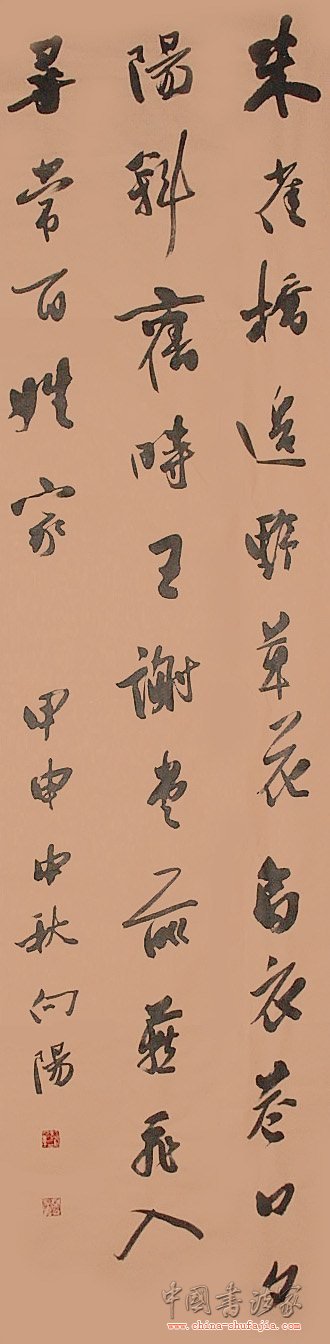 朱雀橋邊野草花烏衣巷口夕
陽斜舊時王謝堂前燕飛入
尋常百姓家
甲申中秋向陽
中國書法家
www.china-shufajia.com